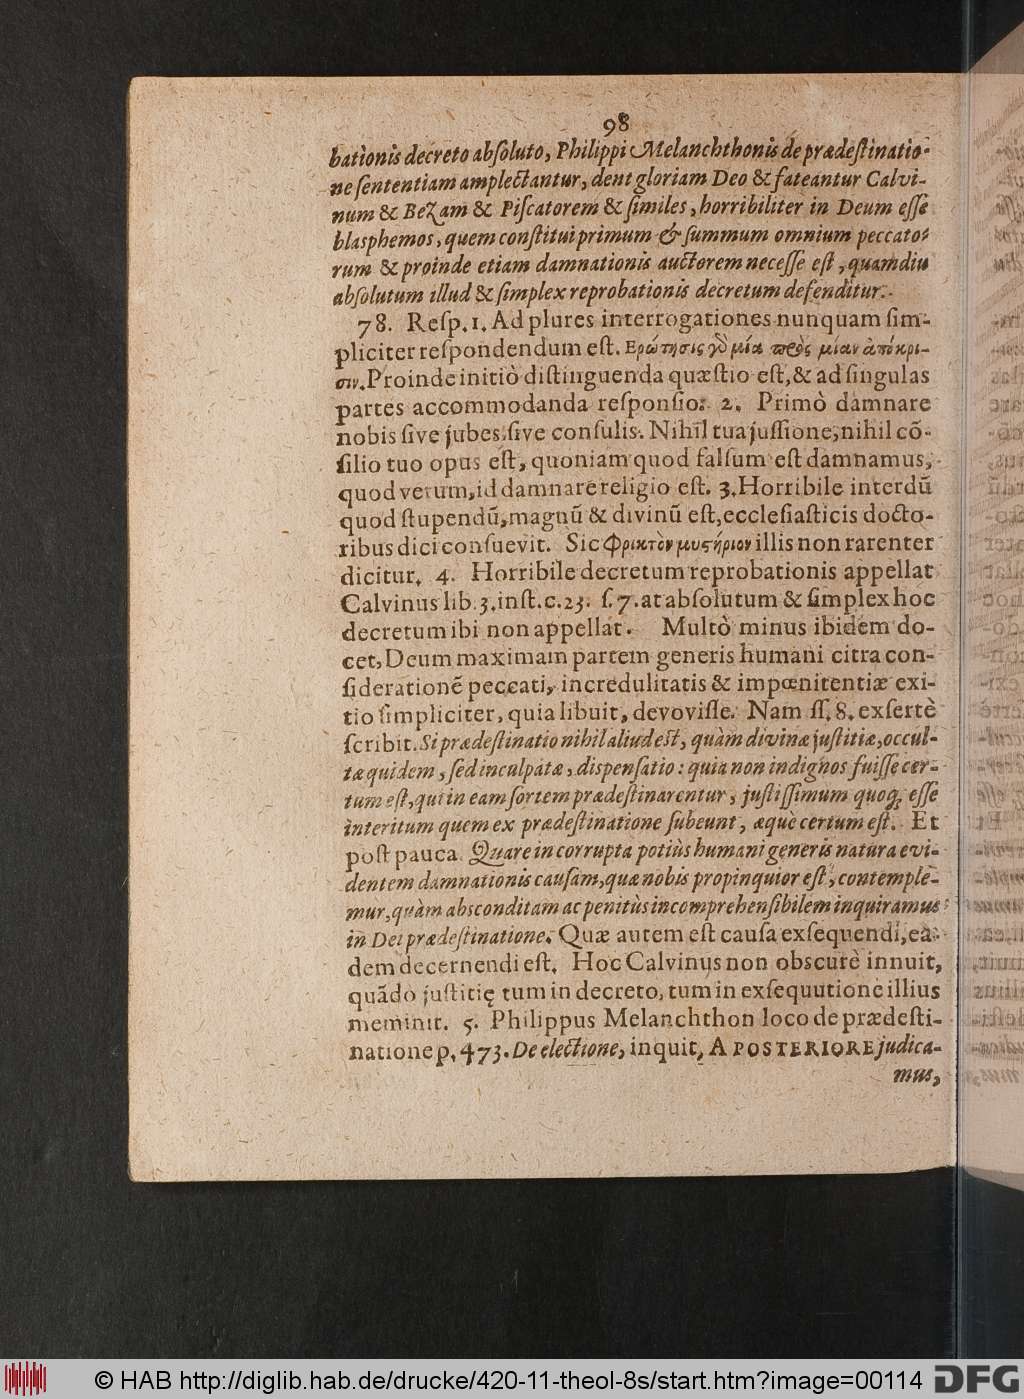 98
bationis decreto abſoluto, Philippi Melanchthonis de prædeſtinatio-
ne ſententiam amplectantur, dent gloriam Deo & fateantur Calvi-
num & Bezam & Piſcatorem & ſimiles, horribiliter in Deum eſſe
blasphemos, quem conſtitui primum & ſummum omnium peccato-
rum & proinde etiam damnationis auctorem neceſſe eſt, quamdiu
abſolutum illud & ſimplex reprobationis decretum defenditur.
78. Reſp. 1. Ad plures interrogationes nunquam ſim-
pliciter reſpondendum eſt. Ερώτησις γὸ μία πρὸς μίαν ἀπόκρι-
σιν. Proinde initiò diſtinguenda quæſtio eſt, & ad ſingulas
partes accommodanda reſponſio. 2. Primò damnare
nobis ſive jubes ſive conſulis. Nihil tua juſſione, nihil cō-
ſilio tuo opus eſt, quoniam quod falſum eſt damnamus,
quod verum, id damnare religio eſt. 3. Horribile interdū
quod ſtupendū, magnū & divinū eſt, eccleſiaſticis docto-
ribus dici conſuevit. Sic Φρικτὸν μυςήριον illis non rarenter
dicitur. 4. Horribile decretum reprobationis appellat
Calvinus lib. 3. inſt. c. 23. ſ. 7. at abſolutum & ſimplex hoc
decretum ibi non appellat. Multò minus ibidem do-
cet, Deum maximam partem generis humani citra con-
ſiderationē peccati, incredulitatis & impœnitentiæ exi-
tio ſimpliciter, quia libuit, devoviſſe. Nam ſſ. 8. exſertè
ſcribit. Si prædeſtinatio nihil aliud eſt, quàm divinæ juſtitiæ, occul-
tæ quidem, ſed inculpatæ, dispenſatio: quia non indignos fuiſſe cer-
tum eſt, qui in eam ſortem prædeſtinarentur, juſtiſſimum quoq; eſſe
interitum quem ex prædeſtinatione ſubeunt, æquè certum eſt. Et
poſt pauca. Quare in corrupta potiùs humani generis natura evi-
dentem damnationis cauſam, quæ nobis propinquior eſt, contemple-
mur, quàm absconditam ac penitùs incomprehenſibilem inquiramus
in Dei prædeſtinatione. Quæ autem eſt cauſa exſequendi, ea-
dem decernendi eſt. Hoc Calvinus non obscurè innuit,
quādo juſtitię tum in decreto, tum in exſequutione illius
meminit. 5. Philippus Melanchthon loco de prædeſti-
natione p. 473. De electione, inquit, A POSTERIORE judica-
mus,
© HAB http://diglib.hab.de/drucke/420-11-theol-8s/start.htm?image=00114
DFG